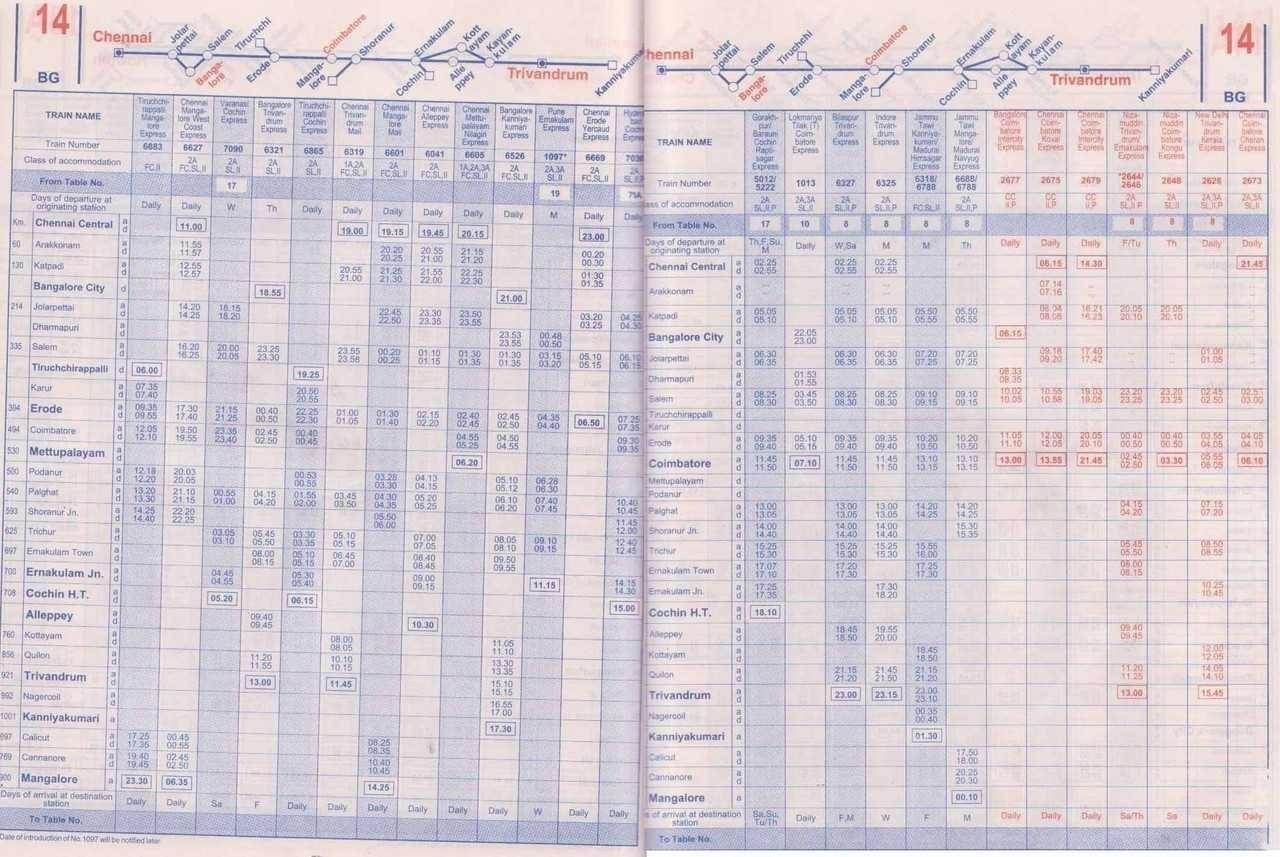 14
BG
Chennai
Jolar pettai
Salem
Banga-lore
Tiruchchi
Erode
Coimbatore
Manga-lore
Shoranur
Ernakulam
Cochin
Kott ayam
Alle ppey
Kayan-kulam
Trivandrum
Kanniyakumari
TRAIN NAME
Tiruchchi-rappalli Manga-lore Express
Chennai Manga-lore West Coast Express
Varanasi Cochin Express
Bangalore Trivan-drum Express
Tiruch-rappalli Cochin Express
Chennai Trivan-drum Mail
Chennai Manga-lore Mail
Chennai Alleppey Express
Chennai Mettu-palayam Nilagiri Express
Bangalore Kanniya-kumari Express
Pune Ernakulam Express
Chennai Erode Yercaud Express
Train Number 6683 6627 7090 6321 6865 6319 6601 6041 6605 6526 1097* 6669
Class of accommodation
From Table No. 17 19
Days of departure at originating station Daily Daily W Th Daily Daily Daily Daily Daily Daily M Daily Daily
Km. Chennai Central a
d 11.00 19.00 19.15 19.45 20.15 23.00
60 Arakkonam a 11.55 20.20 20.55 21.15 00.20
d 11.57 20.25 21.00 21.20 00.30
130 Katpadi a 12.55 20.55 21.25 21.55 22.25 01.30
d 12.57 21.00 21.30 22.00 22.30 01.35
Bangalore City d 18.55 21.00
214 Jolarpettai a 14.20 18.15 22.45 23.30 23.50 03.20 04.25
d 14.25 18.20 22.50 23.35 23.55 03.25 04.30
Dharmapuri a 23.53 00.48
d 23.55 00.50
335 Salem a 16.20 20.00 23.25 23.55 00.20 01.10 01.30 01.30 03.15 05.10 06.10
d 16.25 20.05 23.30 23.58 00.25 01.15 01.35 01.35 03.20 05.15 06.15
Tiruchchirappalli d 06.00 19.25
Karur a 07.35 20.50
d 07.40 20.55
394 Erode a 09.35 17.30 21.15 00.40 22.25 01.00 01.30 02.15 02.40 02.45 04.35 06.50 07.25
d 09.55 17.40 21.25 00.50 22.30 01.05 01.40 02.20 02.45 02.50 04.40 07.35
494 Coimbatore a 12.05 19.50 23.35 02.45 00.40 04.55 04.50 09.30
d 12.10 19.55 23.40 02.50 00.45 05.25 04.55 09.35
530 Mettupalayam a 06.20
500 Podanur a 12.18 20.03 00.53 03.28 04.13 05.10 06.28
d 12.20 20.05 00.55 03.30 04.15 05.12 06.30
540 Palghat a 13.20 21.10 00.55 04.15 01.55 03.45 04.30 05.20 06.10 07.40 10.40
d 13.30 21.15 01.00 04.20 02.00 03.50 04.35 05.25 06.20 07.45 10.45
593 Shoranur Jn. a 14.25 22.20 05.50 11.45
d 14.40 22.25 06.00 12.00
625 Trichur a 03.05 05.45 03.30 05.10 07.00 08.05 09.10 12.40
d 03.10 05.50 03.35 05.15 07.05 08.10 09.15 12.45
697 Ernakulam Town a 08.00 05.10 06.45 08.40 09.50
d 08.15 05.15 07.00 08.45 09.55
700 Ernakulam Jn. a 04.45 05.30 09.00 11.15 14.15
d 04.55 05.40 09.15 14.30
708 Cochin H.T. a 05.20 06.15 15.00
Alleppey a 09.40 10.30
d 09.45
760 Kottayam a 08.00 11.05
d 08.05 11.10
856 Quilon a 11.20 10.10 13.30
d 11.55 10.15 13.35
921 Trivandrum a 13.00 11.45 15.10
d 15.15
992 Nagercoil a 16.55
d 17.00
1001 Kanniyakumari a 17.30
Calicut a 17.25 00.45 08.25
d 17.35 00.55 08.35
Cannanore a 19.40 02.45 10.40
d 19.45 02.50 10.45
Mangalore a 23.30 06.35 14.25
Days of arrival at destination station Daily Daily Sa F Daily Daily Daily Daily Daily Daily W Daily Daily
To Table No.
Date of introduction of No.1097 will be notified later.
14
BG
hennai
Jolar pettai
Salem
Banga-lore
Tiruchchi
Erode
Coimbatore
Manga-lore
Shoranur
Ernakulam
Cochin
Kott ayam
Alle ppey
Kayan-kulam
Trivandrum
Kanniyakumari
TRAIN NAME
Gorakh-pur/ Barauni Cochin Rapti-sagar Express
Lokmanya Tilak (T) Coim-batore Express
Bilaspur Trivan-drum Express
Indore Trivan-drum Express
Jammu Tawi Kanniya-kumari/ Madurai Himsagar Express
Jammu Tawi Mangalore/ Madurai Navyug Express
Bangalore Coim-batore Intercity Express
Chennai Coim-batore Kovai Express
Chennai Coim-batore Intercity Express
Niza-muddin Trivan-drum/ Ernakulam Express
Niza-muddin Coim-batore Kongu Express
New Delhi Trivan-drum Kerala Express
Chennai Coim-batore Cheran Express
Train Number 5012/5222 1013 6327 6325 6318/6788 6688/6788 2677 2675 2679 *2644/2646 2648 2626 2673
lass of accommodation
From Table No. 17 10 8 8 8 8 8 8 8
Days of departure at originating station Th,F,Su,M Daily W,Sa M M Th Daily Daily Daily F/Tu Th Daily Daily
Chennai Central a 02.25 02.25 02.25 06.15 14.30 21.45
d 02.55 02.55 02.55
Arakkonam a 07.14
d 07.16
Katpadi a 05.05 05.05 05.05 05.50 05.50 08.04 16.21 20.05 20.05
d 05.10 05.10 05.10 05.55 05.55 08.06 16.23 20.10 20.10
Bangalore City a 22.05 06.15
d 23.00
Jolarpettai a 06.30 06.30 06.30 07.20 07.20 09.18 17.40 01.00
d 06.35 06.35 06.35 07.25 07.25 09.20 17.42 01.05
Dharmapuri a 01.53 08.33
d 01.55 08.35
Salem a 08.25 03.45 08.25 08.25 09.10 09.10 10.02 10.55 19.03 23.20 23.20 02.45 02.55
d 08.30 03.50 08.30 08.30 09.15 09.15 10.05 10.58 19.05 23.25 23.25 02.50 03.00
Tiruchchirapalli d
Karur a
Erode a 09.35 05.10 09.35 09.35 10.20 10.20 11.05 12.00 20.05 00.40 00.40 03.55 04.05
d 09.40 05.15 09.40 09.40 10.50 10.50 11.10 12.05 20.10 00.50 00.50 04.00 04.10
Coimbatore a 11.45 07.10 11.45 11.45 13.10 13.10 13.00 13.55 21.45 02.45 03.30 05.55 06.10
d 11.50 11.50 11.50 13.15 13.15 02.50 06.05
Mettupalayam d
Podanur d
Palghat a 13.00 13.00 13.00 14.20 14.20 04.15 07.15
d 13.05 13.05 13.05 14.25 14.25 04.20 07.20
Shoranur Jn. a 14.00 14.00 14.00 15.30
d 14.40 14.40 14.40 15.35
Trichur a 15.25 15.25 15.25 15.55 05.45 08.50
d 15.30 15.30 15.30 16.00 05.50 08.55
Ernakulam Town a 17.07 17.20 17.25 08.00
d 17.10 17.30 17.30 08.15
Ernakulam Jn. a 17.25 17.30 10.25
d 17.35 18.20 10.45
Cochin H.T. a 18.10
d
Alleppey a 18.45 19.55 09.40
d 18.50 20.00 09.45
Kottayam a 18.45 12.00
d 18.50 12.05
Quilon a 21.15 21.45 21.15 11.20 14.05
d 21.20 21.50 21.20 11.25 14.10
Trivandrum a 23.00 23.15 23.00 13.00 15.45
d 23.10
Nagercoil a 00.35
d 00.40
Kanniyakumari a 01.30
Calicut a 17.50
d 18.00
Cannanore a 20.25
d 20.30
Mangalore a 00.10
s of arrival at destination station Sa,Su,Tu/Th Daily F,M W F M Daily Daily Daily Sa/Th Sa Daily Daily
To Table No.